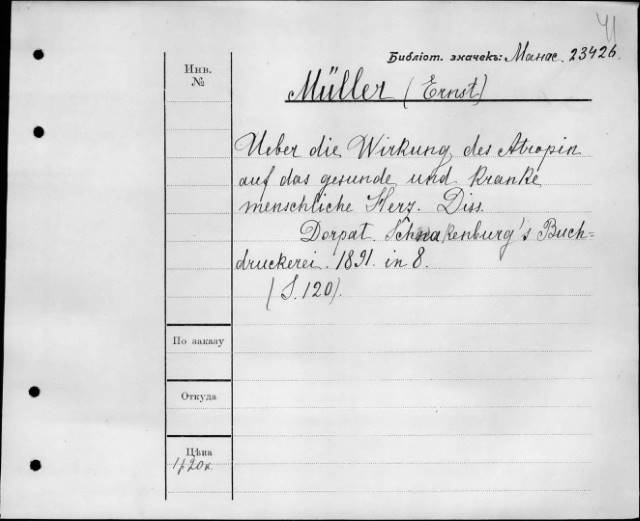 41
Библіот. значекъ: Манас. 23426.
Инв.
№
Müller (Ernst)
Ueber die Wirkung des Atropin
auf das gesunde und kranke
menschliche Herz. Diss.
Dorpat. Schnakenburg's Buch=
druckerei. 1891. in 8.
(S. 120).
По заказу
Откуда
Цѣна
1р20к.